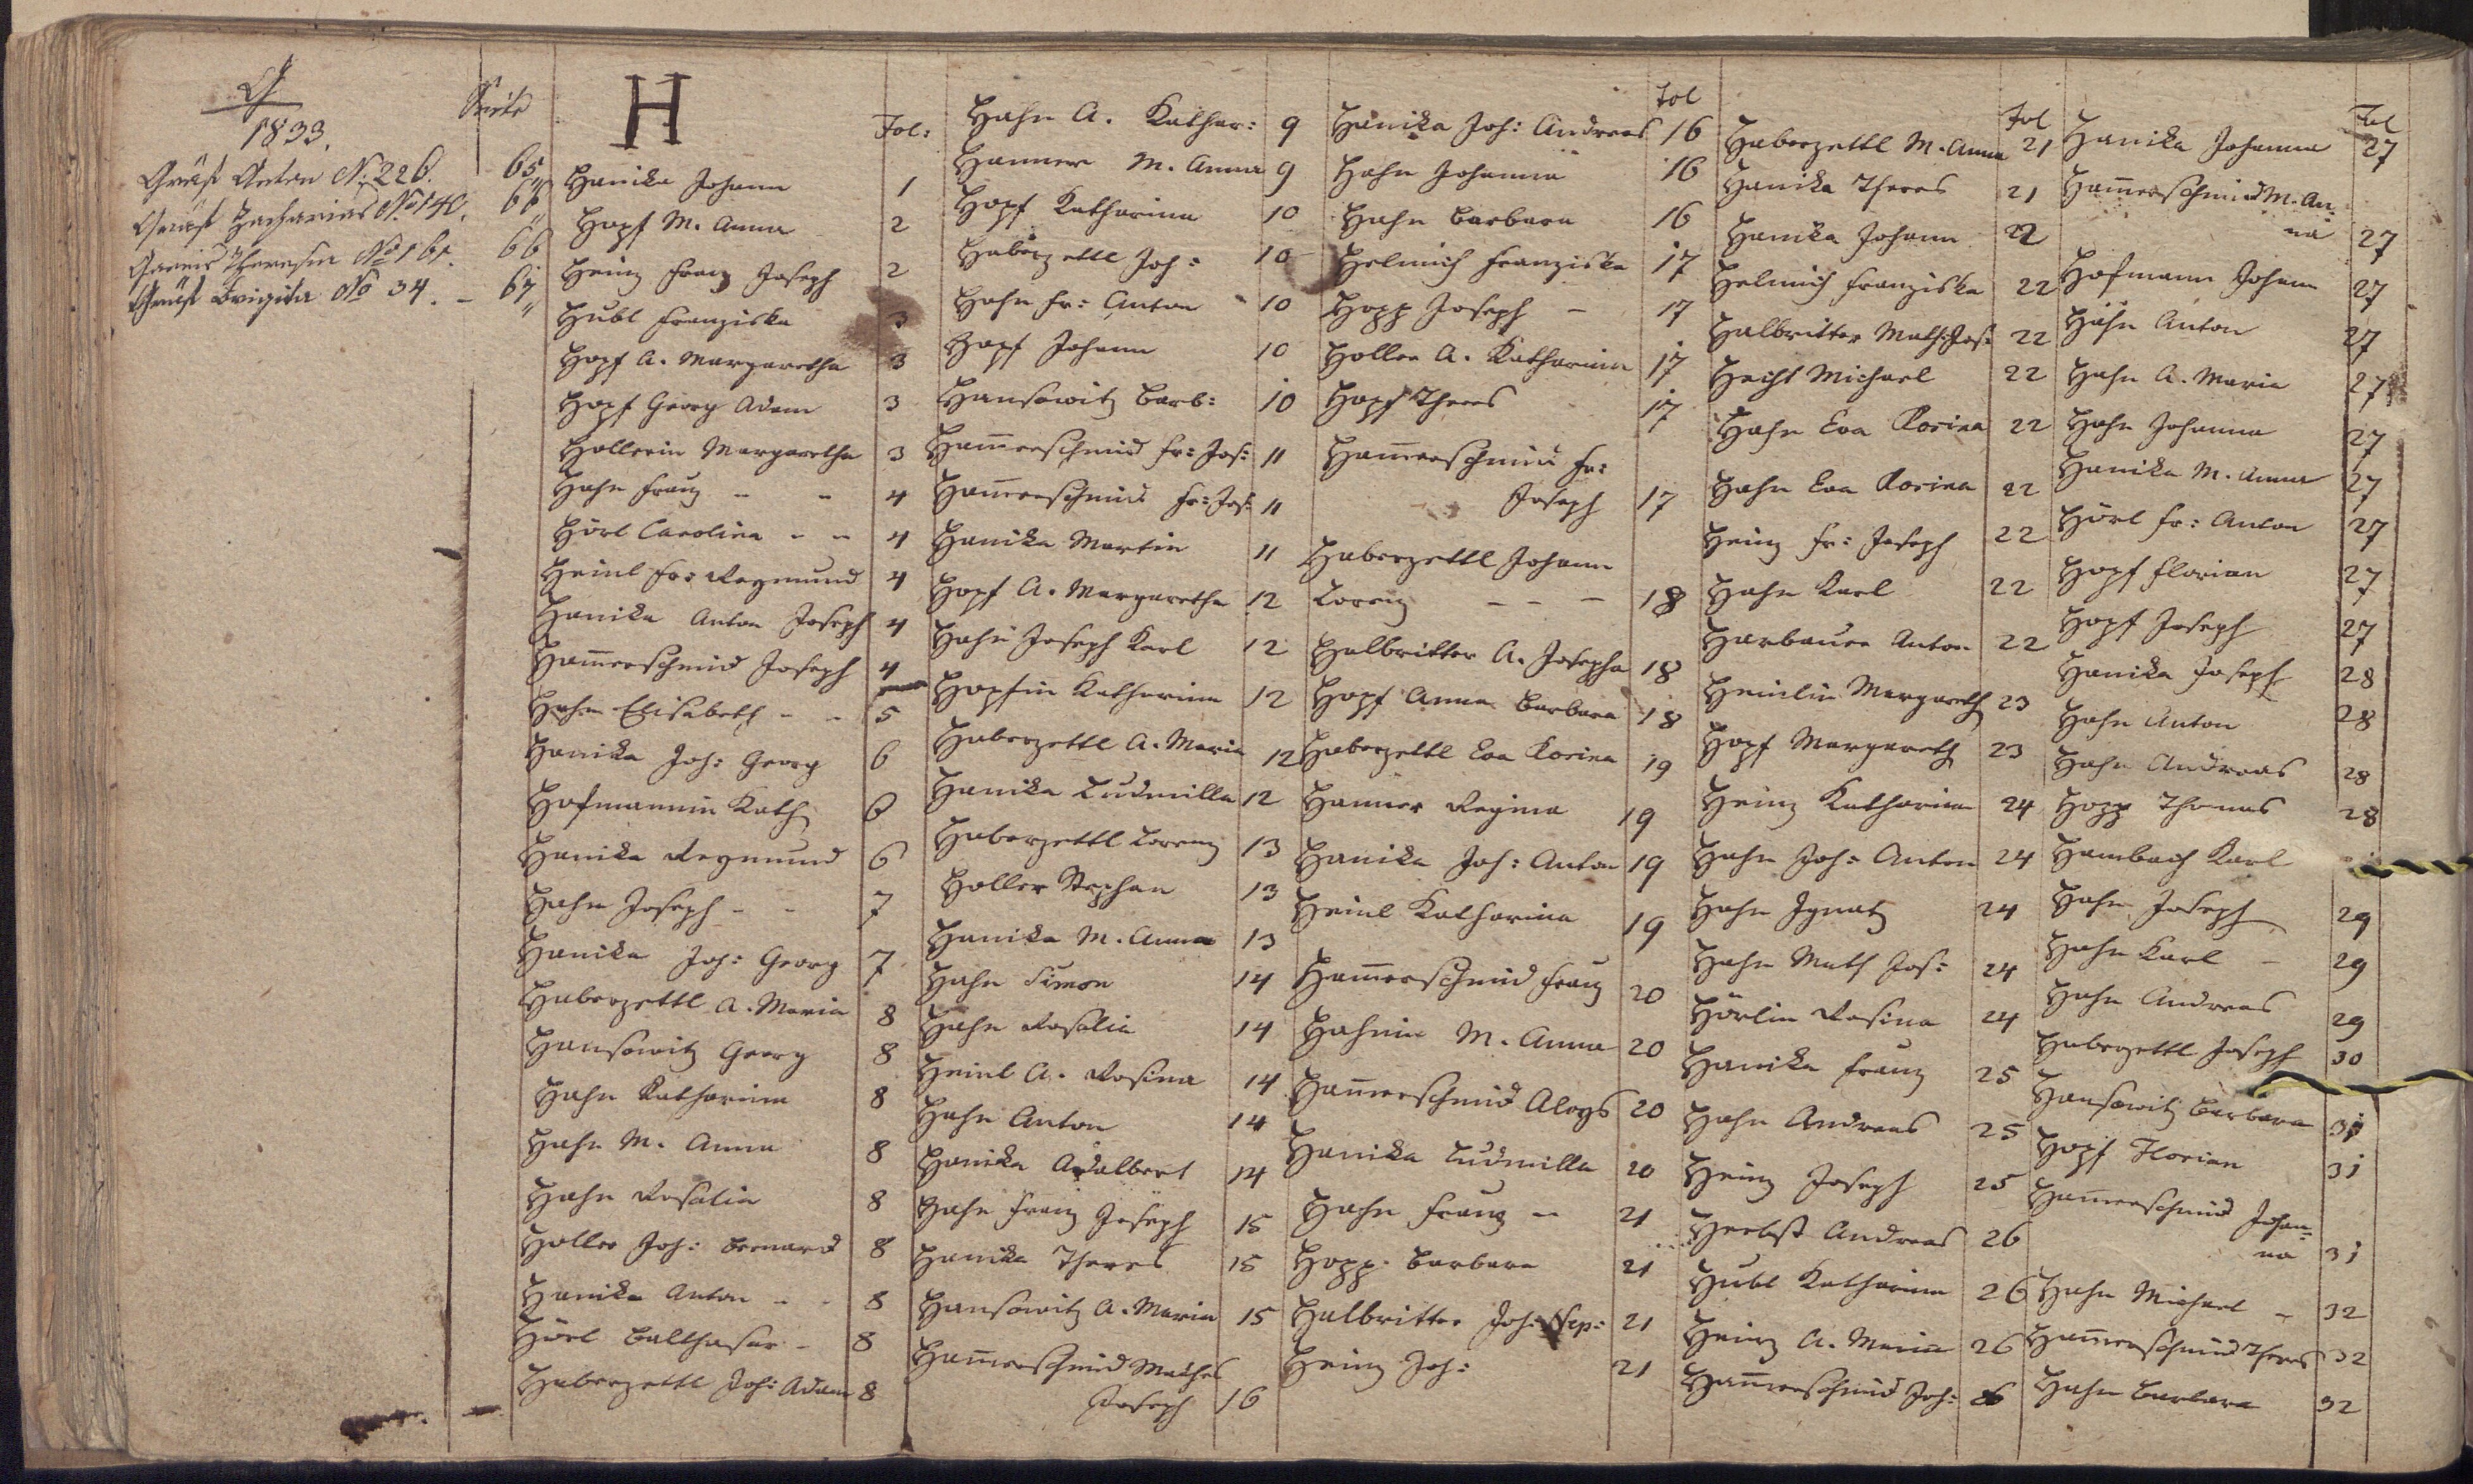 G
Seite
1833.
Gräf Anton No. 226. 65
Gräf Zacharias No 140. 66
Theresia No 161. 66
Gräf Brigita No 34. - 67
H
Fol:
Hanika Johann 1
Hopf M. Anna 2
Heinz Franz Joseph 2
Hubl Franziska 3
Hopf A. Margaretha 3
Hopf Georg Adam 3
Hollerin Margaretha 3
Hahn Franz - - 4
Hörl Carolina - - 4
Heinl Fr: Raymund 4
Hanika Anton Joseph 4
Ham̅erschmid Joseph 4
Hahn Elisabeth - - 5
Hanika Joh: Georg 6
Hofmannin Kath 6
Hanika Raymund 6
Hahn Joseph - - 7
Hanika Joh: Georg 7
Haberzettl A. Maria 8
Hansowitz Georg 8
Hahn Katharina 8
Hahn M. Anna 8
Hahn Rosalia 8
Holler Joh: Bernard 8
Hanika Anton - - 8
Hörl Balthasar - 8
Haberzettl Joh: Adam 8
Hahn A. Kathar: 9
Hanner M. Anna 9
Hopf Katharina 10
Haberzettl Joh: 10
Hahn Fr: Anton - 10
Hopf Johann 10
Hansowitz Barb: 10
Ham̅erschmid Fr: Jos: 11
Ham̅erschmid Fr: Jos: 11
Hanika Martin 11
Hopf A. Margaretha 12
Hahn Joseph Karl 12
Hopfin Katharina 12
Haberzettl A. Maria 12
Hanika Ludmilla 12
Haberzettl Lorenz 13
Holler Stephan 13
Hanika M. Anna 13
Hahn Simon 14
Hahn Rosalia 14
Heinl A. Rosina 14
Hahn Anton 14
Hanika Adalbert 14
Hahn Franz Joseph 15
Hanika Theres 15
Hansowitz A. Maria 15
Ham̅erschmid Mathes
Joseph 16
Fol
Hanika Joh: Andreas 16
Hahn Johanna 16
Hahn Barbara 16
Helmich Franziska 17
Hopp Joseph - 17
Holler A. Katharina 17
Hopf Theres 17
Ham̅erschmid Fr:
Joseph 17
Haberzettl Johann
Lorenz - - - 18
Halbritter A. Josepha 18
Hopf Anna Barbara 18
Haberzettl Eva Rosina 19
Hanner Regina 19
Hanika Joh: Anton 19
Heinl Katharina 19
Ham̅erschmid Franz 20
Hahnin M. Anna 20
Ham̅erschmid Aloys 20
Hanika Ludmilla 20
Hahn Franz - 21
Hopp Barbara 21
Halbritter Joh: Nep: 21
Heinz Joh: 21
Fol
Haberzettl M. Anna 21
Hanika Theres 21
Hanika Johann 22
Helmich Franziska 22
Halbritter Math: Jos: 22
Hecht Michael 22
Hahn Eva Rosina 22
Hahn Eva Rosina 22
Heinz Fr: Joseph 22
Hahn Karl 22
Harbauer Anton 22
Heinlin Margareth 23
Hopf Margareth 23
Heinz Katharina 24
Hahn Joh: Anton 24
Hahn Ignatz 24
Hahn Math Jos: 24
Hörlin Rosina 24
Hanika Franz 25
Hahn Andreas 25
Heinz Joseph 25
Herbst Andreas 26
Hubl Katharina 26
Heinz A. Maria 26
Ham̅erschmid Joh: 26
Fol
Hanika Johanna 27
Ham̅erschmid M. An-
na 27
Hofmann Johann 27
Hahn Anton 27
Hahn A. Maria 27
Hahn Johanna 27
Hanika M. Anna 27
Hörl Fr: Anton 27
Hopf Florian 27
Hopf Joseph 27
Hanika Joseph 28
Hahn Anton 28
Hahn Andreas 28
Hopp Thomas 28
Hambach Karl
Hahn Joseph 29
Hahn Karl - 29
Hahn Andreas 29
Haberzettl Joseph 30
Hansowitz Barbara 31
Hopf Florian 31
Ham̅erschmid Johan=
na 31
Hahn Michael - 32
Ham̅erschmid Theres 32
Hahn Barbara 32